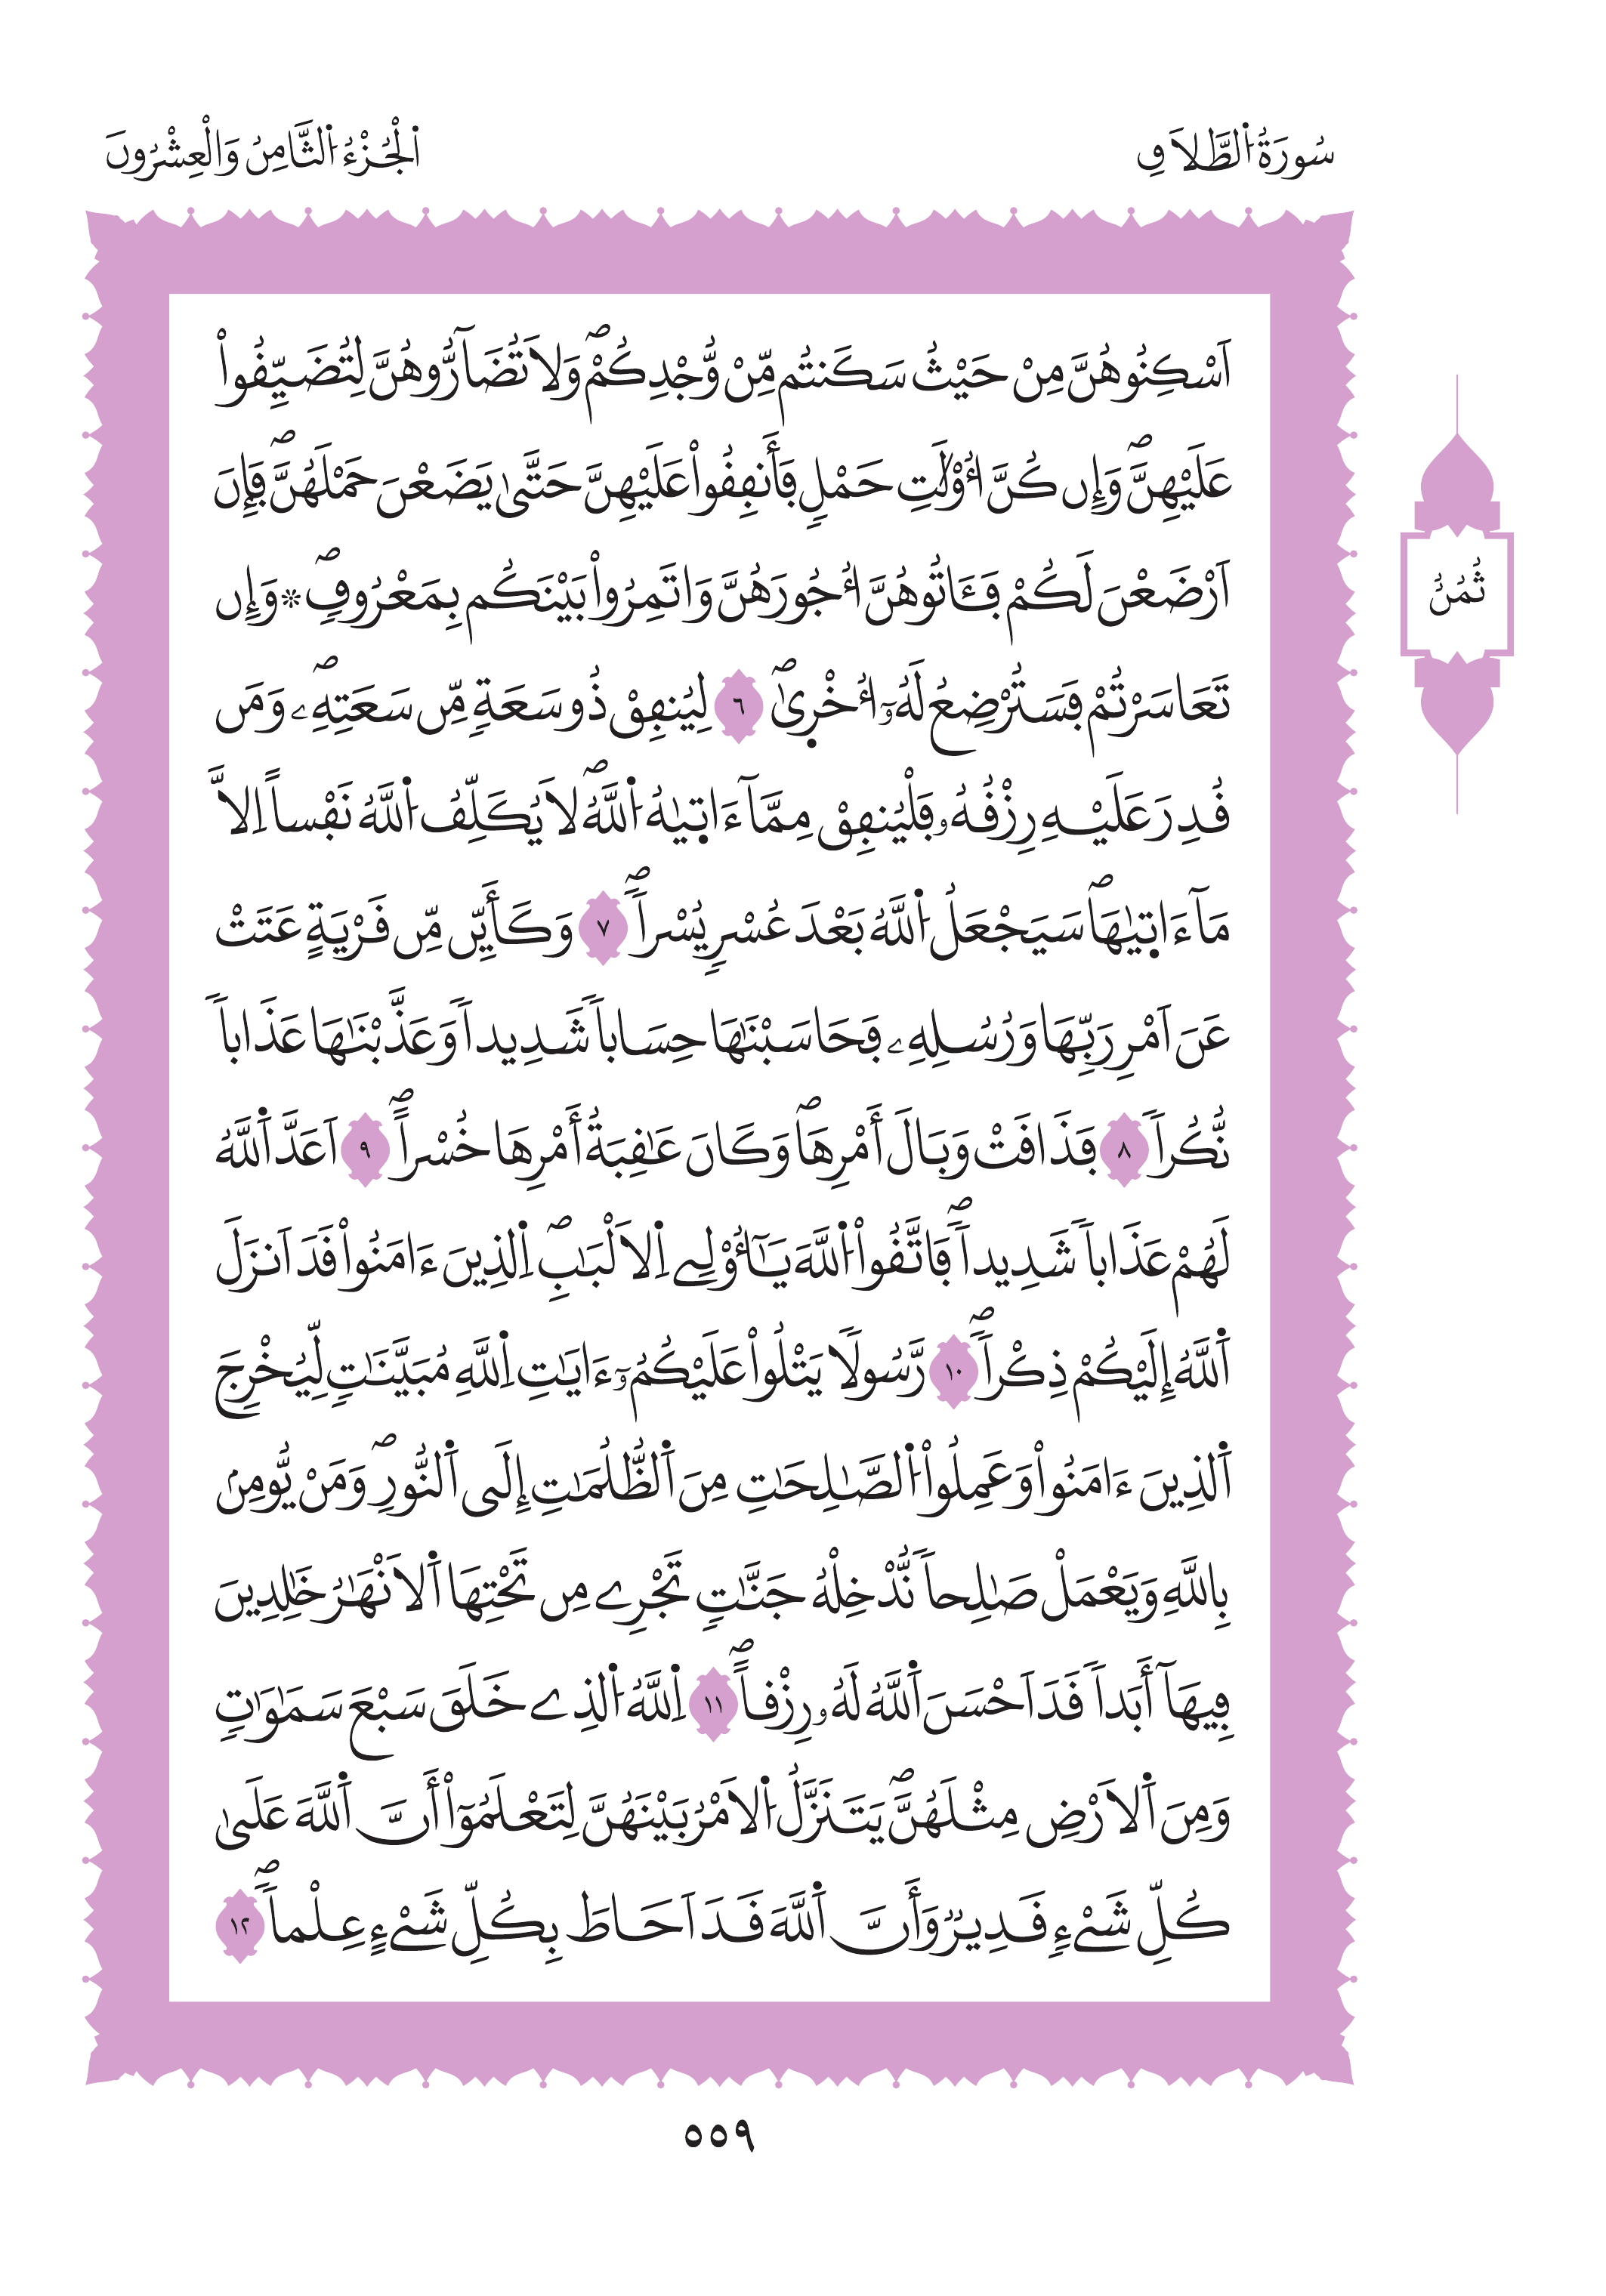 سُورَةُ اُ۬لطَّلَاقِ
اَ۬لْجُزْءُ اُ۬لثَّامِنُ وَالْعِشْرُونَ
اَسْكِنُوهُنَّ مِنْ حَيْثُ سَكَنتُم مِّنْ وُّجْدِكُمْۖ وَلَا تُضَآرُّوهُنَّ لِتُضَيِّقُواْ
عَلَيْهِنَّۖ وَإِن كُنَّ أُوْلَٰتِ حَمْلٖ فَأَنفِقُواْ عَلَيْهِنَّ حَتَّىٰ يَضَعْنَ حَمْلَهُنَّۖ فَإِنَ
اَرْضَعْنَ لَكُمْ فَـَٔاتُوهُنَّ أُجُورَهُنَّ وَاتَمِرُواْ بَيْنَكُم بِمَعْرُوفٖۖ ۞ وَإِن
ثُمُنُ
تَعَاسَرْتُمْ فَسَتُرْضِعُ لَهُۥٓ أُخْر۪يٰۖ ٦ لِيُنفِقْ ذُو سَعَةٖ مِّن سَعَتِهِۦۖ وَمَن
قُدِرَ عَلَيْهِ رِزْقُهُۥ فَلْيُنفِقْ مِمَّآ ءَات۪يٰهُ اُ۬للَّهُۖ لَا يُكَلِّفُ اُ۬للَّهُ نَفْساً اِلَّا
مَآ ءَات۪يٰهَاۖ سَيَجْعَلُ اُ۬للَّهُ بَعْدَ عُسْرٖ يُسْراٗۖ ٧ وَكَأَيِّن مِّن قَرْيَةٍ عَتَتْ
عَنَ اَمْرِ رَبِّهَا وَرُسُلِهِۦ فَحَاسَبْنَٰهَا حِسَاباٗ شَدِيداٗ وَعَذَّبْنَٰهَا عَذَاباٗ
نُّكُراٗ ٨ فَذَاقَتْ وَبَالَ أَمْرِهَاۖ وَكَانَ عَٰقِبَةُ أَمْرِهَا خُسْراًۖ ٩ اَعَدَّ اَ۬للَّهُ
لَهُمْ عَذَاباٗ شَدِيداٗۖ فَاتَّقُواْ اُ۬للَّهَ يَٰٓأُوْلِے اِ۬لَالْبَٰبِۖ اِ۬لذِينَ ءَامَنُواْ قَدَ اَنزَلَ
اَ۬للَّهُ إِلَيْكُمْ ذِكْراٗۖ ١٠ رَّسُولاٗ يَتْلُواْ عَلَيْكُمُۥٓ ءَايَٰتِ اِ۬للَّهِ مُبَيَّنَٰتٖ لِّيُخْرِجَ
اَ۬لذِينَ ءَامَنُواْ وَعَمِلُواْ اُ۬لصَّٰلِحَٰتِ مِنَ اَ۬لظُّلُمَٰتِ إِلَى اَ۬لنُّورِۖ وَمَنْ يُّومِنۢ
بِاللَّهِ وَيَعْمَلْ صَٰلِحاٗ نُّدْخِلْهُ جَنَّٰتٖ تَجْرِے مِن تَحْتِهَا اَ۬لَانْهَٰرُ خَٰلِدِينَ
فِيهَآ أَبَداٗ قَدَ اَحْسَنَ اَ۬للَّهُ لَهُۥ رِزْقاًۖ ١١ اِ۬للَّهُ اُ۬لذِے خَلَقَ سَبْعَ سَمَٰوَٰتٖ
وَمِنَ اَ۬لَارْضِ مِثْلَهُنَّۖ يَتَنَزَّلُ اُ۬لَامْرُ بَيْنَهُنَّ لِتَعْلَمُوٓاْ أَنَّ اَ۬للَّهَ عَلَىٰ
كُلِّ شَےْءٖ قَدِيرٞ وَأَنَّ اَ۬للَّهَ قَدَ اَحَاطَ بِكُلِّ شَےْءٍ عِلْماٗۖ ١٢
٥٥٩